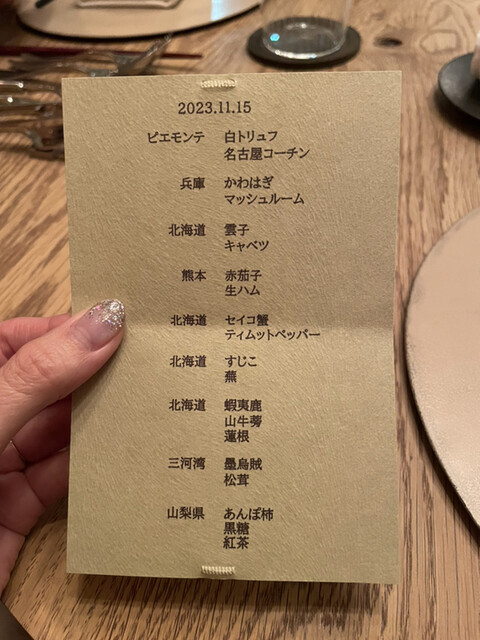 2023.11.15
ピエモンテ 白トリュフ
名古屋コーチン
兵庫 かわはぎ
マッシュルーム
北海道 雲子
キャベツ
熊本 赤茄子
生ハム
北海道 セイコ蟹
ティムットペッパー
北海道 すじこ
蕪
北海道 蝦夷鹿
山牛蒡
蓮根
三河湾 墨烏賊
松茸
山梨県 あんぽ柿
黒糖
紅茶